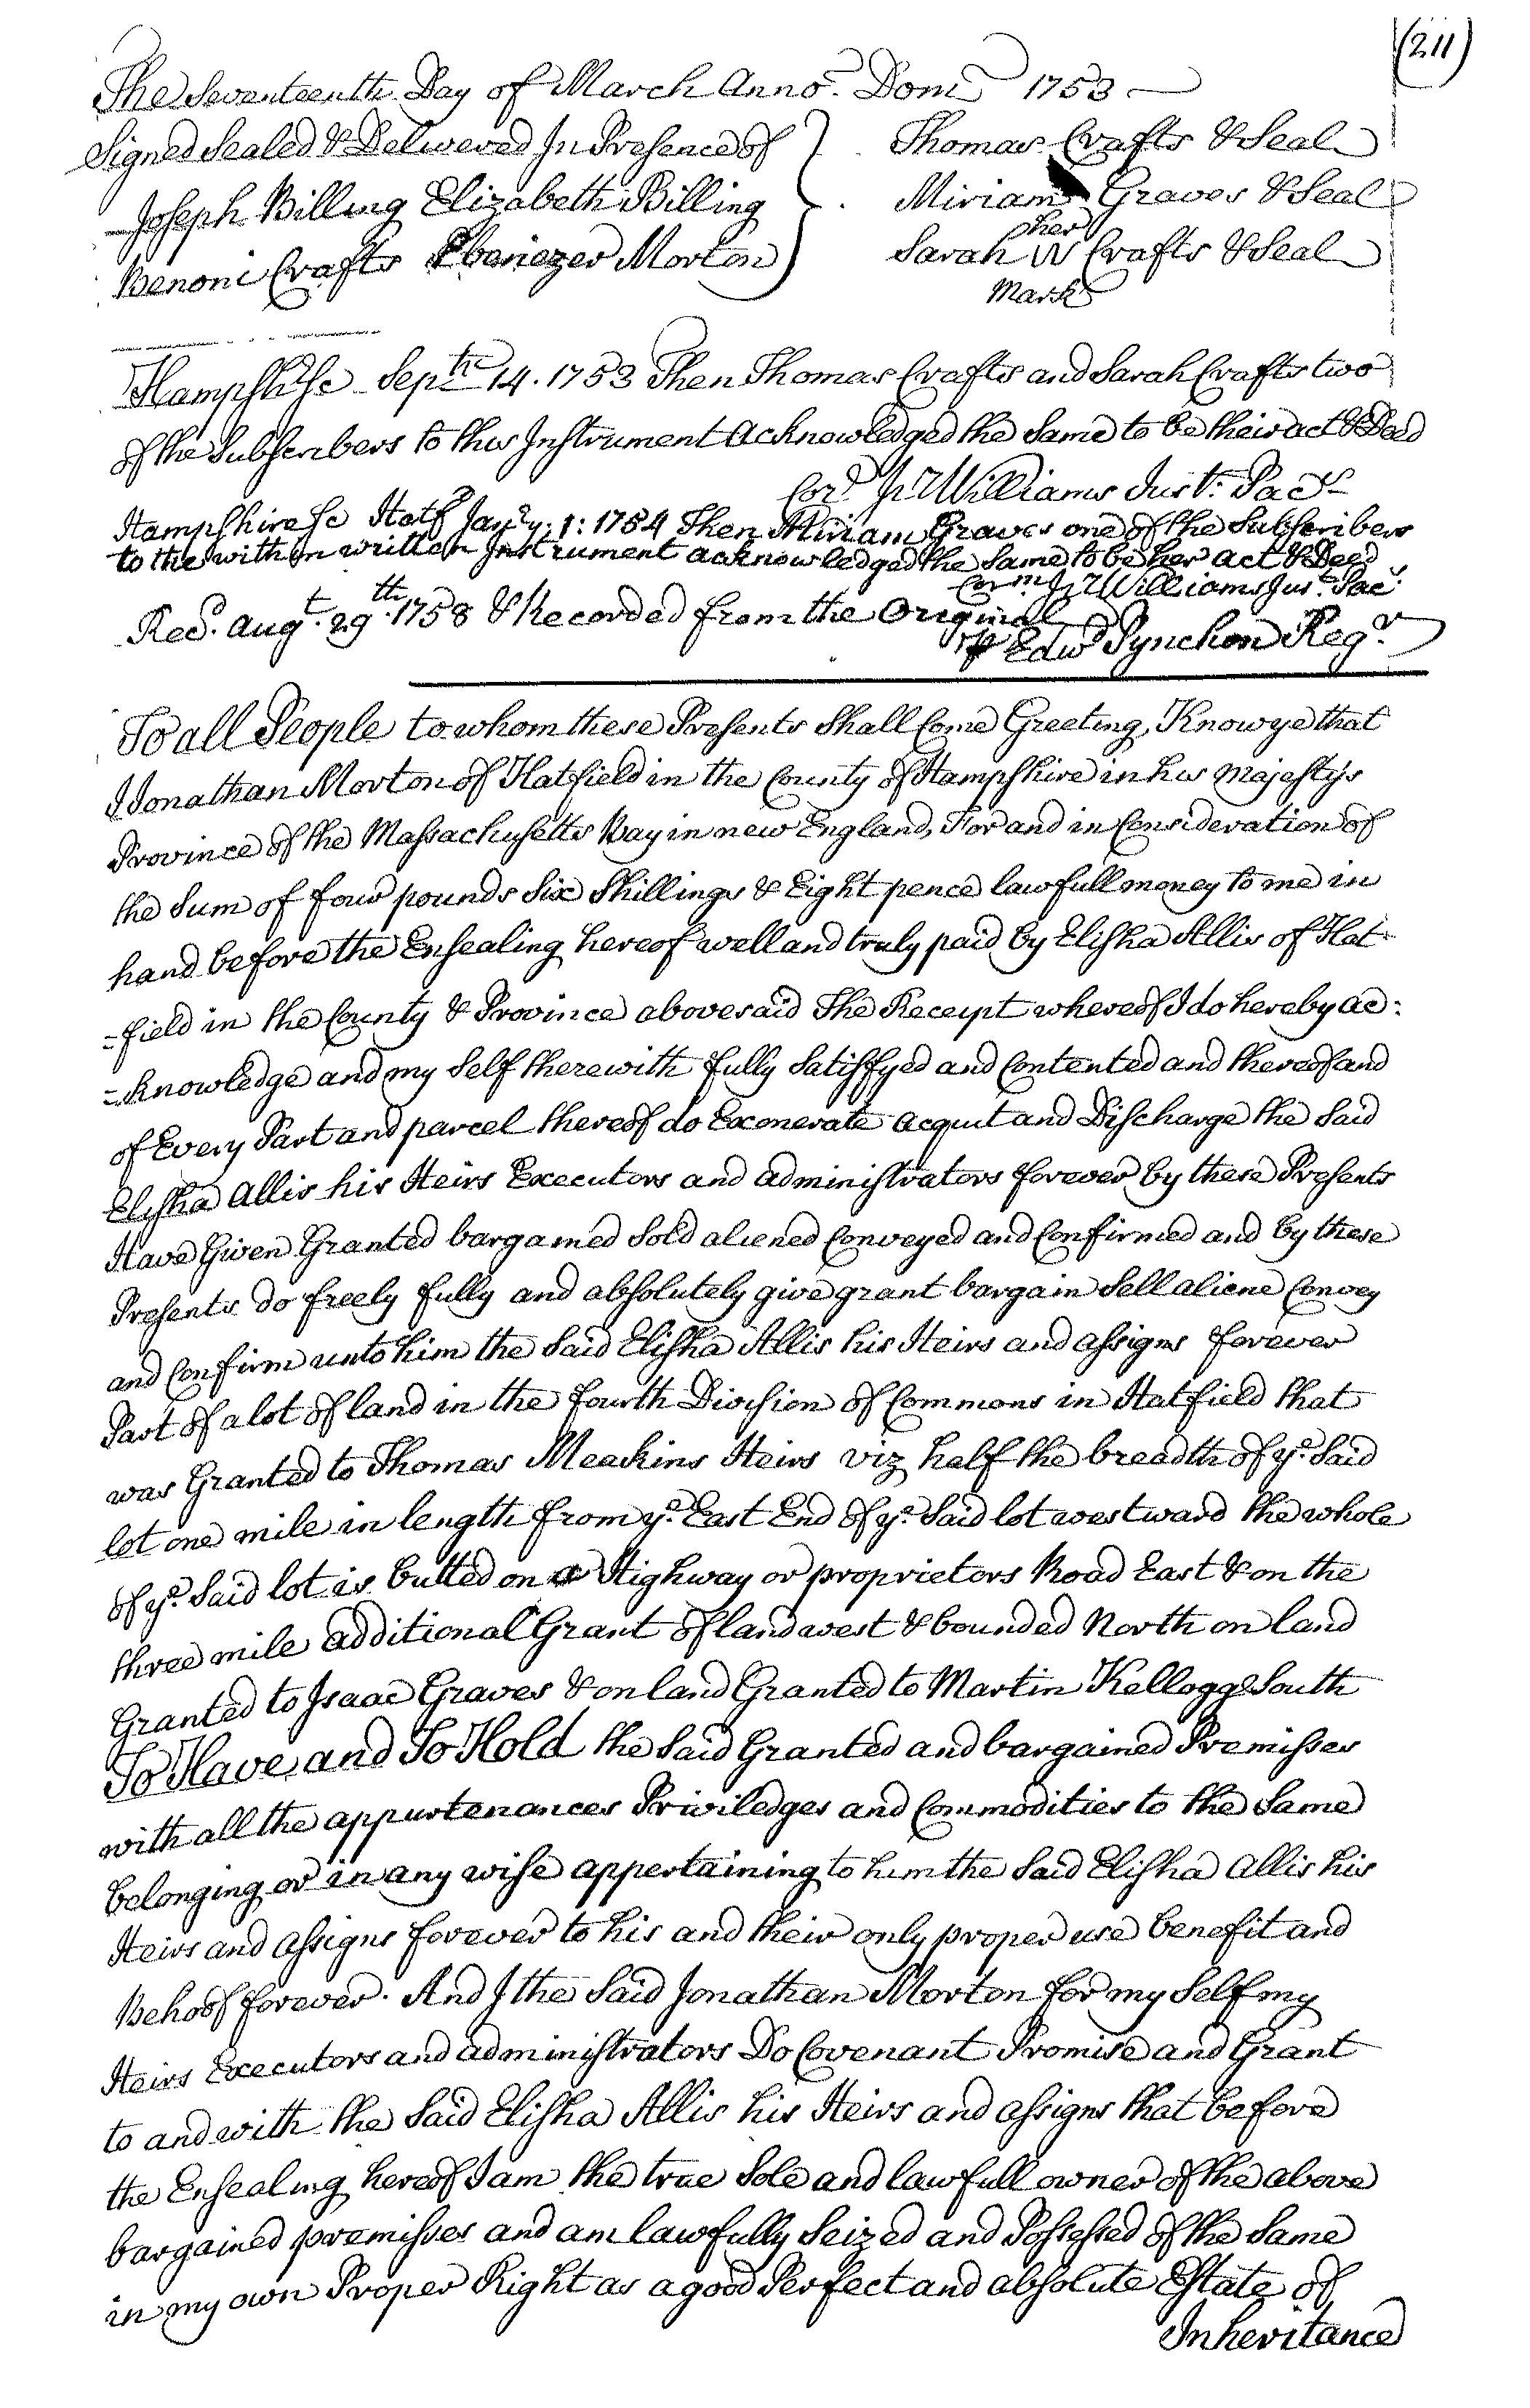 (211)
The Seventeenth Day of March Anno. Dom 1753
Signed Sealed & Delivered In Presence of } Thomas Crafts & Seal
Joseph Billing Elizabeth Billing } Miriam Graves & Seal
her
Benoni Crafts Ebenezer Morton } Sarah W Crafts & Seal
Mark
Hampshr Sc Septh 14. 1753 Then Thomas Crafts and Sarah Crafts two
of the Subscribers to this Instrument Acknowledged the Same to be their act & Deed
Cor. Jr Williams Just. Pacs
Hampshire Sc Hatf Jany. 1: 1754 Then Miriam Graves one of the Subscribers
to the within written Instrument acknowledged the Same to be her act & Deed
Corm Jr Williams Jus. Pac.
Recd. augt. 29th. 1758 & Recorded from the Original
P Edwd Pynchon Regr
To all People to whom these Presents Shall Come Greeting, Know ye that
I Jonathan Morton of Hatfield in the County of Hampshire in his Majestys
Province of the Massachusetts Bay in new England, For and in Consideration of
the Sum of four pounds Six Shillings & Eight pence lawfull money to me in
hand before the Ensealing hereof well and truly paid by Elisha Allis of Hat-
=field in the County & Province abovesaid The Receipt whereof I do hereby ac:
=knowledge and my Self therewith fully Satisfyed and Contented and thereof and
of Every Part and parcel thereof do Exonerate acquit and Discharge the Said
Elisha Allis his Heirs Executors and administrators forever by these Presents
Have Given Granted bargained Sold aliened Conveyed and Confirmed and by these
Presents do freely fully and absolutely give grant bargain Sell aliene Convey
and Confirm unto him the Said Elisha Allis his Heirs and assigns forever
Part of a lot of land in the fourth Division of Commons in Hatfield that
was Granted to Thomas Meakins Heirs viz half the breadth of ye. Said
lot one mile in length from ye. East End of ye. Said lot westward the whole
of ye. Said lot is butted on a Highway or proprietors Road East & on the
three mile additional Grant of land west & bounded North on land
Granted to Isaac Graves & on land Granted to Martin Kellogg South
To Have and To Hold the Said Granted and bargained Premisses
with all the appurtenances Priviledges and Commodities to the Same
belonging or in any wise appertaining to him the Said Elisha Allis his
Heirs and assigns forever to his and their only proper use benefit and
Behoof forever. And I the Said Jonathan Morton for my Self my
Heirs Executors and administrators Do Covenant Promise and Grant
to and with the Said Elisha Allis his Heirs and assigns that before
the Ensealing hereof I am the true Sole and lawfull owner of the above
bargained premisses and am lawfully Seized and Possessed of the Same
in my own Proper Right as a good Perfect and absolute Estate of
Inheritance